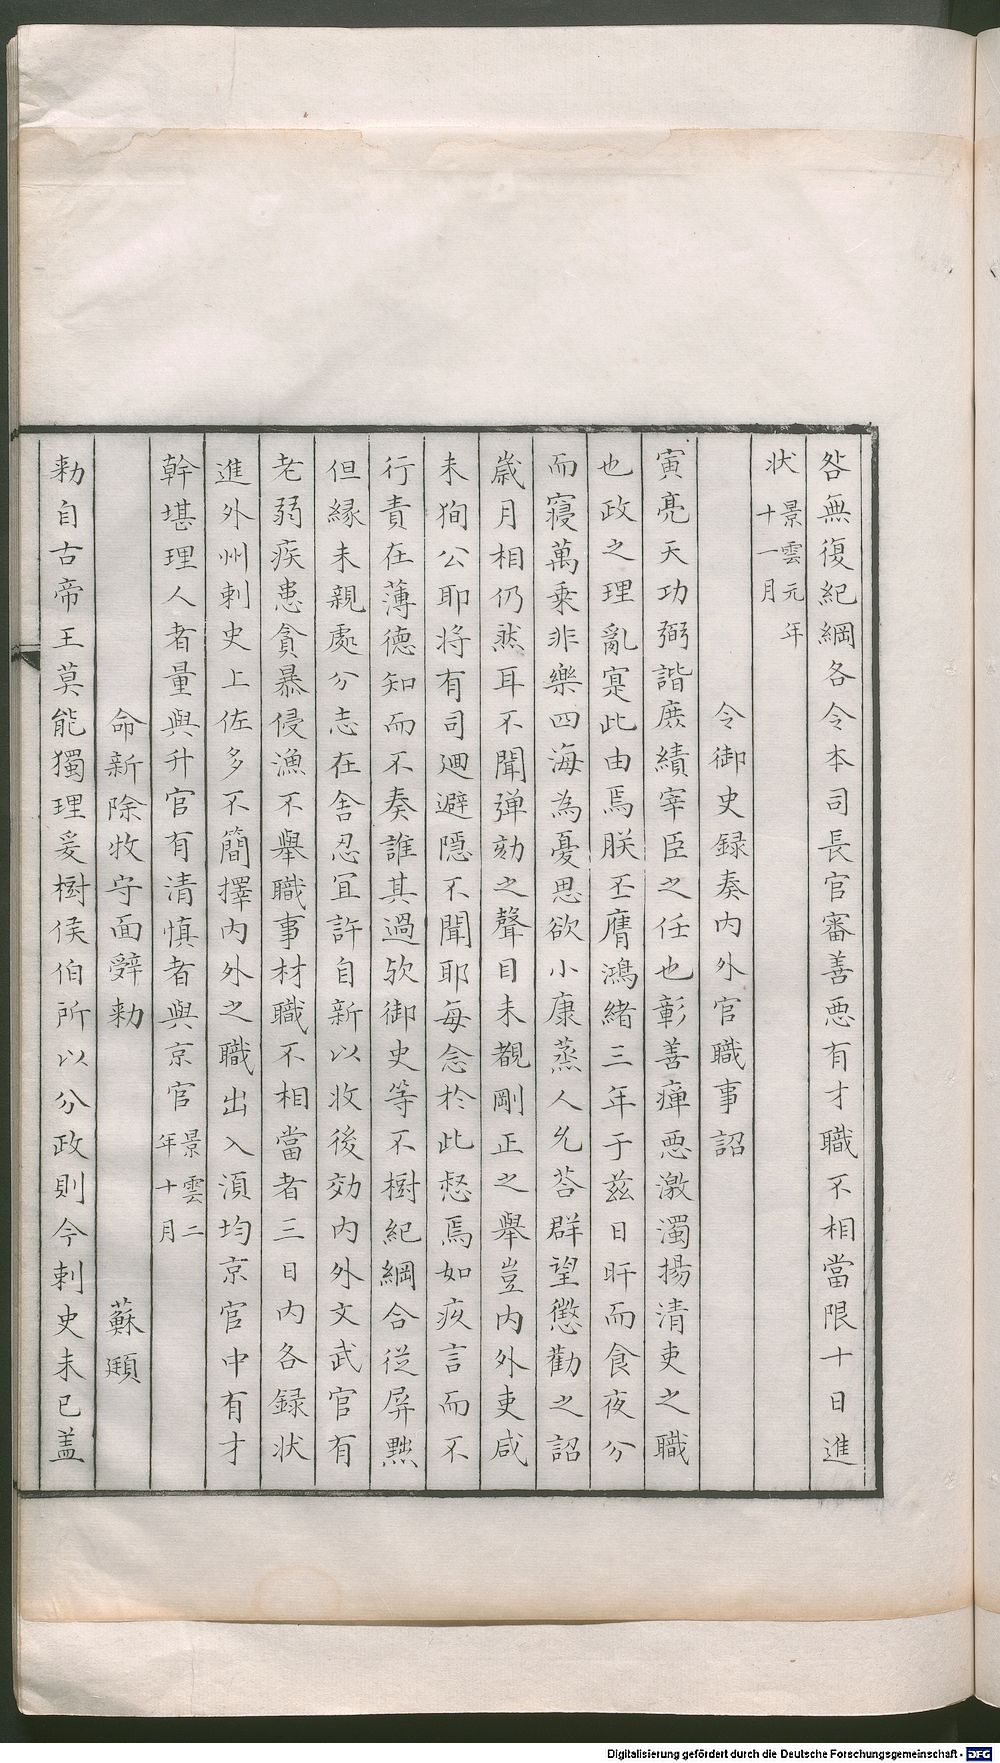 咎無復紀綱各令本司長官審善惡有才職不相當限十日進
狀景雲元年十一月
令御史録奏内外官職事詔
寅亮天功弼諧庶績宰臣之任也彰善癉惡激濁揚清吏之職
也政之理亂寔此由焉朕丕膺鴻緒三年于茲日旰而食夜分
而寢萬乗非樂四海為憂思欲小康蒸人允荅群望懲勸之詔
歳月相仍然耳不聞弾劾之聲目未覩剛正之舉豈内外吏咸
未狥公耶将有司廻避隱不聞耶每念於此惄焉如疚言而不
行責在薄徳知而不奏誰其過欤御史等不樹紀綱合従屏黜
但縁未親處分志在舍忍冝許自新以收後効内外文武官有
老弱疾患貪暴侵漁不舉職事材職不相當者三日内各録状
進外州刺史上佐多不簡擇内外之職出入湏均京官中有才
幹堪理人者量與升官有清慎者與京官景雲二年十月
命新除牧守面辤勑 蘇頲
勑自古帝王莫能獨理爰樹侯伯所以分政則今刺史未已盖
Digitalisierung gefördert durch die Deutsche Forschungsgemeinschaft - DFG